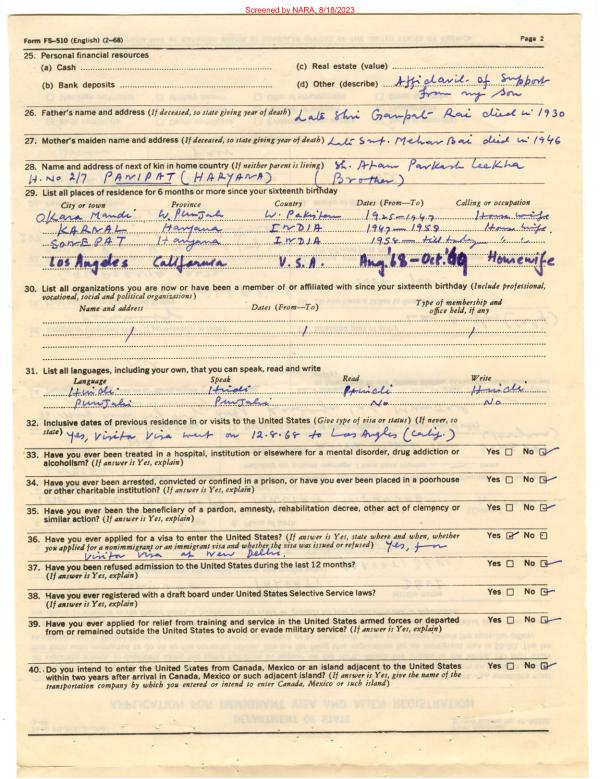 Screened by NARA, 8/18/2023
Form FS-510 (English) (2-68) Page 2
25. Personal financial resources
(a) Cash (c) Real estate (value)
(b) Bank deposits (d) Other (describe) Affidavit of Support
from my son
26. Father's name and address (If deceased, so state giving year of death) Late Shri Ganpat Rai died in 1930
27. Mother's maiden name and address (If deceased, so state giving year of death) Late Smt. Mehar Bai died in 1946
28. Name and address of next of kin in home country (If neither parent is living) Sh. Atam Parkash Leekha
H. No 217 PANIPAT (HARYANA) (Brother)
29. List all places of residence for 6 months or more since your sixteenth birthday
City or town Province Country Dates (From—To) Calling or occupation
Okara Mandi W. Punjab W. Pakistan 1925-1947 House wife
KARNAL Haryana INDIA 1947-1958 House wife.
SONEPAT Haryana INDIA 1958 - till today " "
Los Angeles California U.S.A. Aug '68-Oct. '69 Housewife
30. List all organizations you are now or have been a member of or affiliated with since your sixteenth birthday (Include professional,
vocational, social and political organizations)
Name and address Dates (From—To) Type of membership and
office held, if any
/ / /
31. List all languages, including your own, that you can speak, read and write
Language Speak Read Write
Hindi Hindi Hindi Hindi
Punjabi Punjabi No No
32. Inclusive dates of previous residence in or visits to the United States (Give type of visa or status) (If never, so
state) Yes, Visitor Visa went on 12.8.68 to Los Angles (Calif.)
33. Have you ever been treated in a hospital, institution or elsewhere for a mental disorder, drug addiction or Yes No
alcoholism? (If answer is Yes, explain)
34. Have you ever been arrested, convicted or confined in a prison, or have you ever been placed in a poorhouse Yes No
or other charitable institution? (If answer is Yes, explain)
35. Have you ever been the beneficiary of a pardon, amnesty, rehabilitation decree, other act of clemency or Yes No
similar action? (If answer is Yes, explain)
36. Have you ever applied for a visa to enter the United States? (If answer is Yes, state where and when, whether Yes No
you applied for a nonimmigrant or an immigrant visa and whether the visa was issued or refused) Yes, for
Visitor Visa at New Delhi.
37. Have you been refused admission to the United States during the last 12 months? Yes No
(If answer is Yes, explain)
38. Have you ever registered with a draft board under United States Selective Service laws? Yes No
(If answer is Yes, explain)
39. Have you ever applied for relief from training and service in the United States armed forces or departed Yes No
from or remained outside the United States to avoid or evade military service? (If answer is Yes, explain)
40. Do you intend to enter the United States from Canada, Mexico or an island adjacent to the United States Yes No
within two years after arrival in Canada, Mexico or such adjacent island? (If answer is Yes, give the name of the
transportation company by which you entered or intend to enter Canada, Mexico or such island)